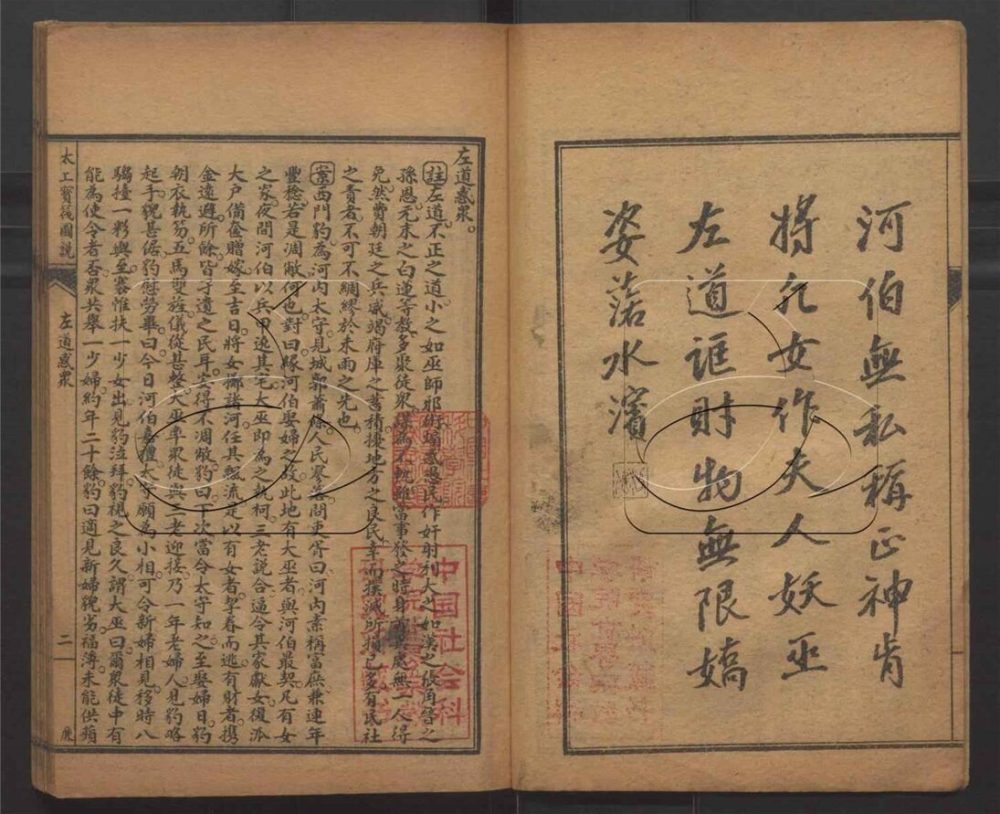 河伯無私稱正神肯
將凡女作夫人妖巫
左道誆財物無限嬌
姿落水濱
左道惑眾。
註左道不正之道小之如巫師邪術煽惑愚民作奸射利大之如漢之張角晉之
孫恩元末之白蓮等教多聚徒眾謀為不軌雖當事發之時身首異處無一人得
免然費朝廷之兵威竭府庫之蓄積擾地方之良民幸而撲滅所損已多有民社
之責者不可不綢繆於未雨之先也
案西門豹為河內太守見城郭蕭條人民寥落問吏胥曰河內素稱富庶兼連年
豐稔若是凋敝何也對曰緣河伯娶婦之故此地有大巫者與河伯最契凡有女
之家夜間河伯以兵甲遶其宅大巫即為之執柯三老說合逼令其家獻女復派
大戶備奩贈嫁至吉日將女擲諸河任其飄流是以有女者挈眷而逃有財者攜
金遠避所餘皆孑遺之民耳安得不凋敝豹曰下次當令太守知之至娶婦日豹
朝衣執笏五馬雙旌儀從甚整大巫率眾徒與三老迎接乃一年老婦人見豹略
起手貌甚倨豹慰勞畢曰今日河伯嘉禮太守願為小相可令新婦相見移時八
騶擡一彩輿至褰惟扶一少女出見豹泣拜豹視之良久謂大巫曰爾眾徒中有
能為使令者否眾共舉一少婦約年二十餘豹曰適見新婦貌劣福薄未能供蘋
太上寶筏圖說
左道惑眾
二
中国社会科